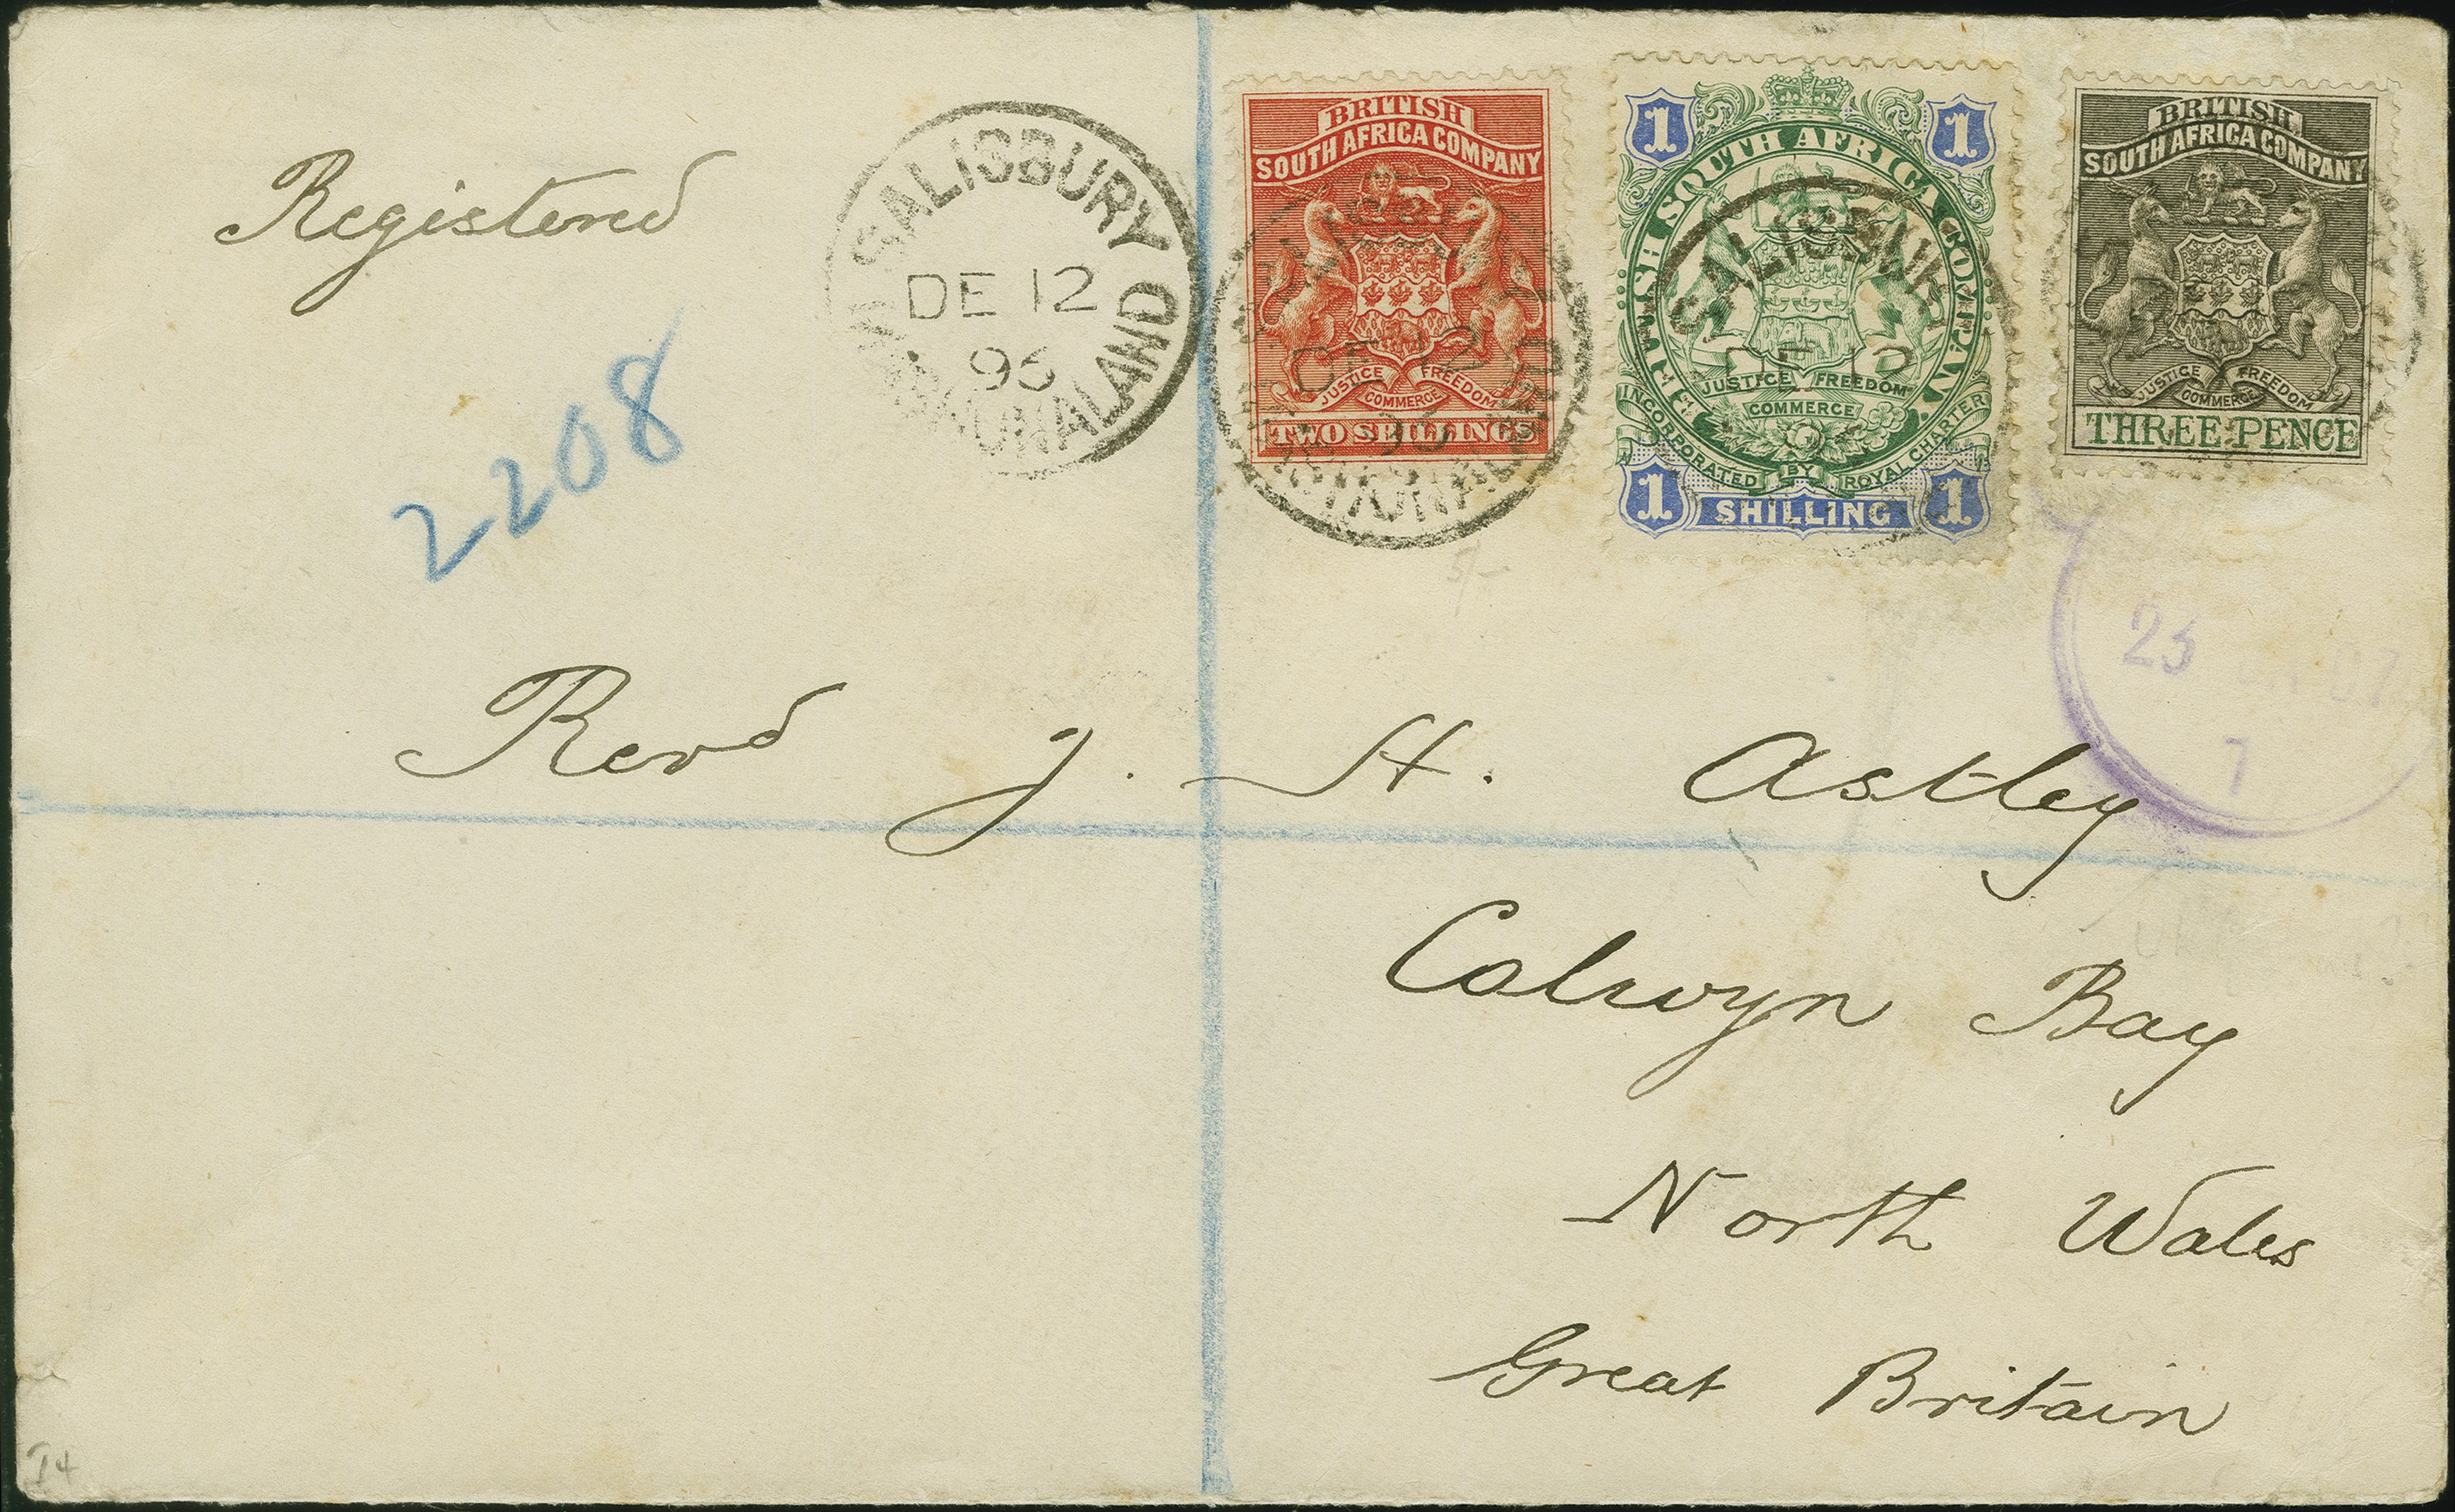 Registered
2208
SALISBURY
DE 12
96
MASHONALAND
BRITISH
SOUTH AFRICA COMPANY
JUSTICE FREEDOM
COMMERCE
TWO SHILLINGS
1 1
BRITISH SOUTH AFRICA COMPANY
JUSTICE FREEDOM
COMMERCE
INCORPORATED BY ROYAL CHARTER
1 SHILLING 1
SALISBURY
DE 12
BRITISH
SOUTH AFRICA COMPANY
JUSTICE FREEDOM
COMMERCE
THREE PENCE
DE 12
96
5/-
23
7
Revd J. H. Astley
Colwyn Bay
North Wales
Great Britain